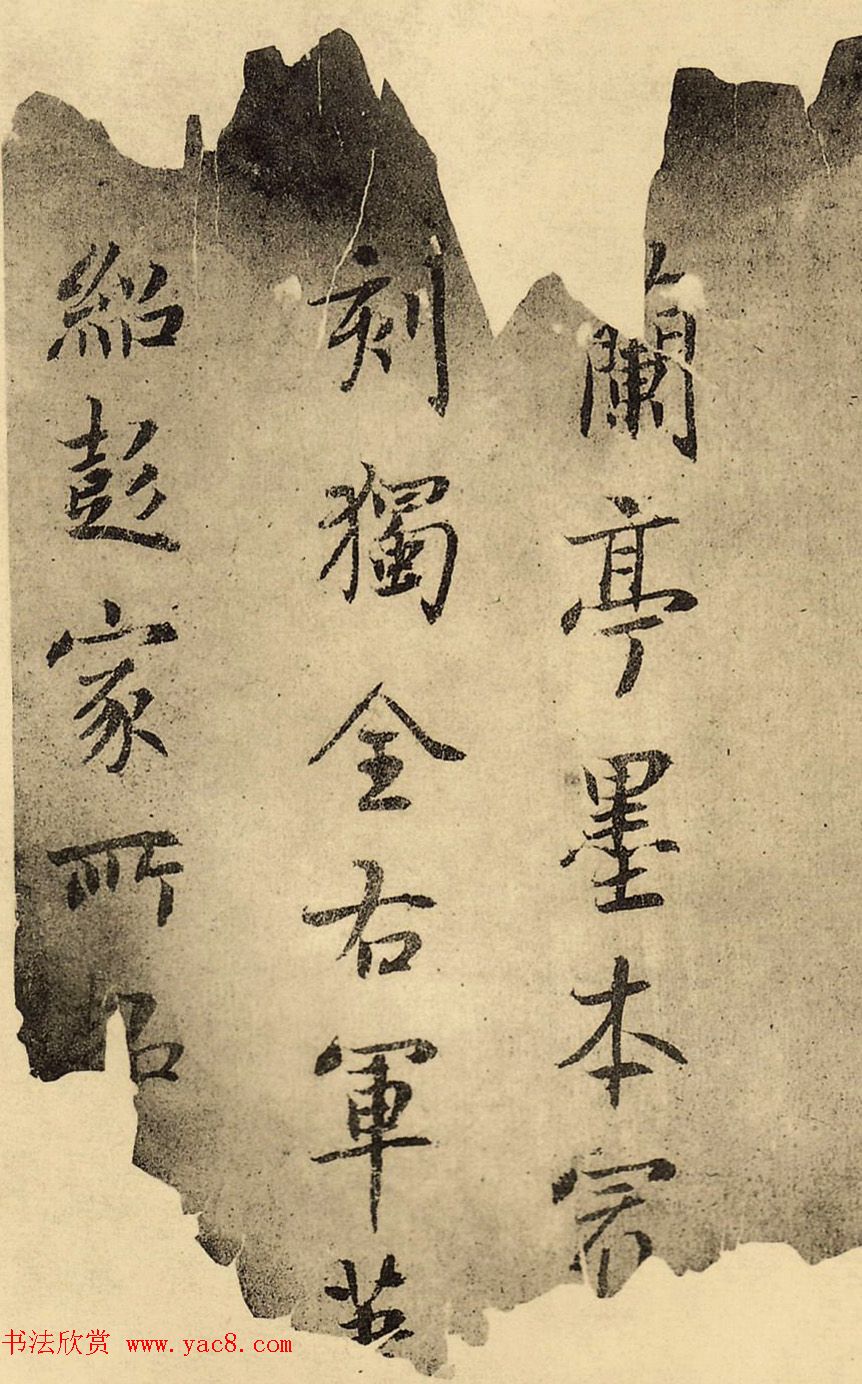 蘭亭墨本
刻獨全右軍
紹彭家所
书法欣赏 www.yac8.com